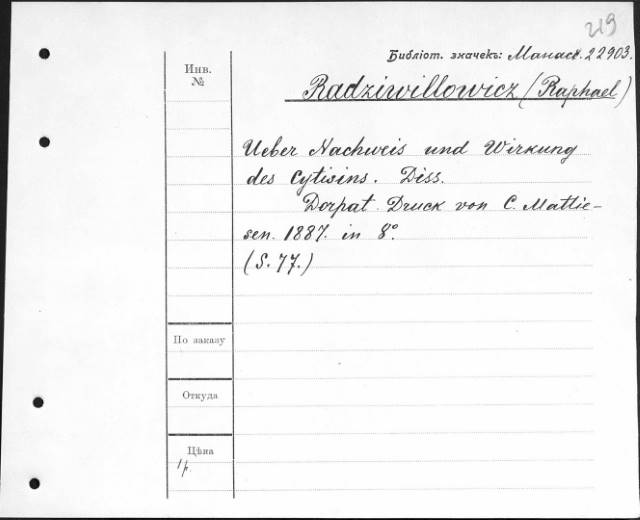 219
Библіот. значекъ: Манасс. 22903.
Инв.
№
Radziwillowicz (Raphael)
Ueber Nachweis und Wirkung
des Cytisins. Diss.
Dorpat. Druck von C. Mattie-
sen. 1887. in 8°.
(S. 77.)
По заказу
Откуда
Цѣна
1 р.